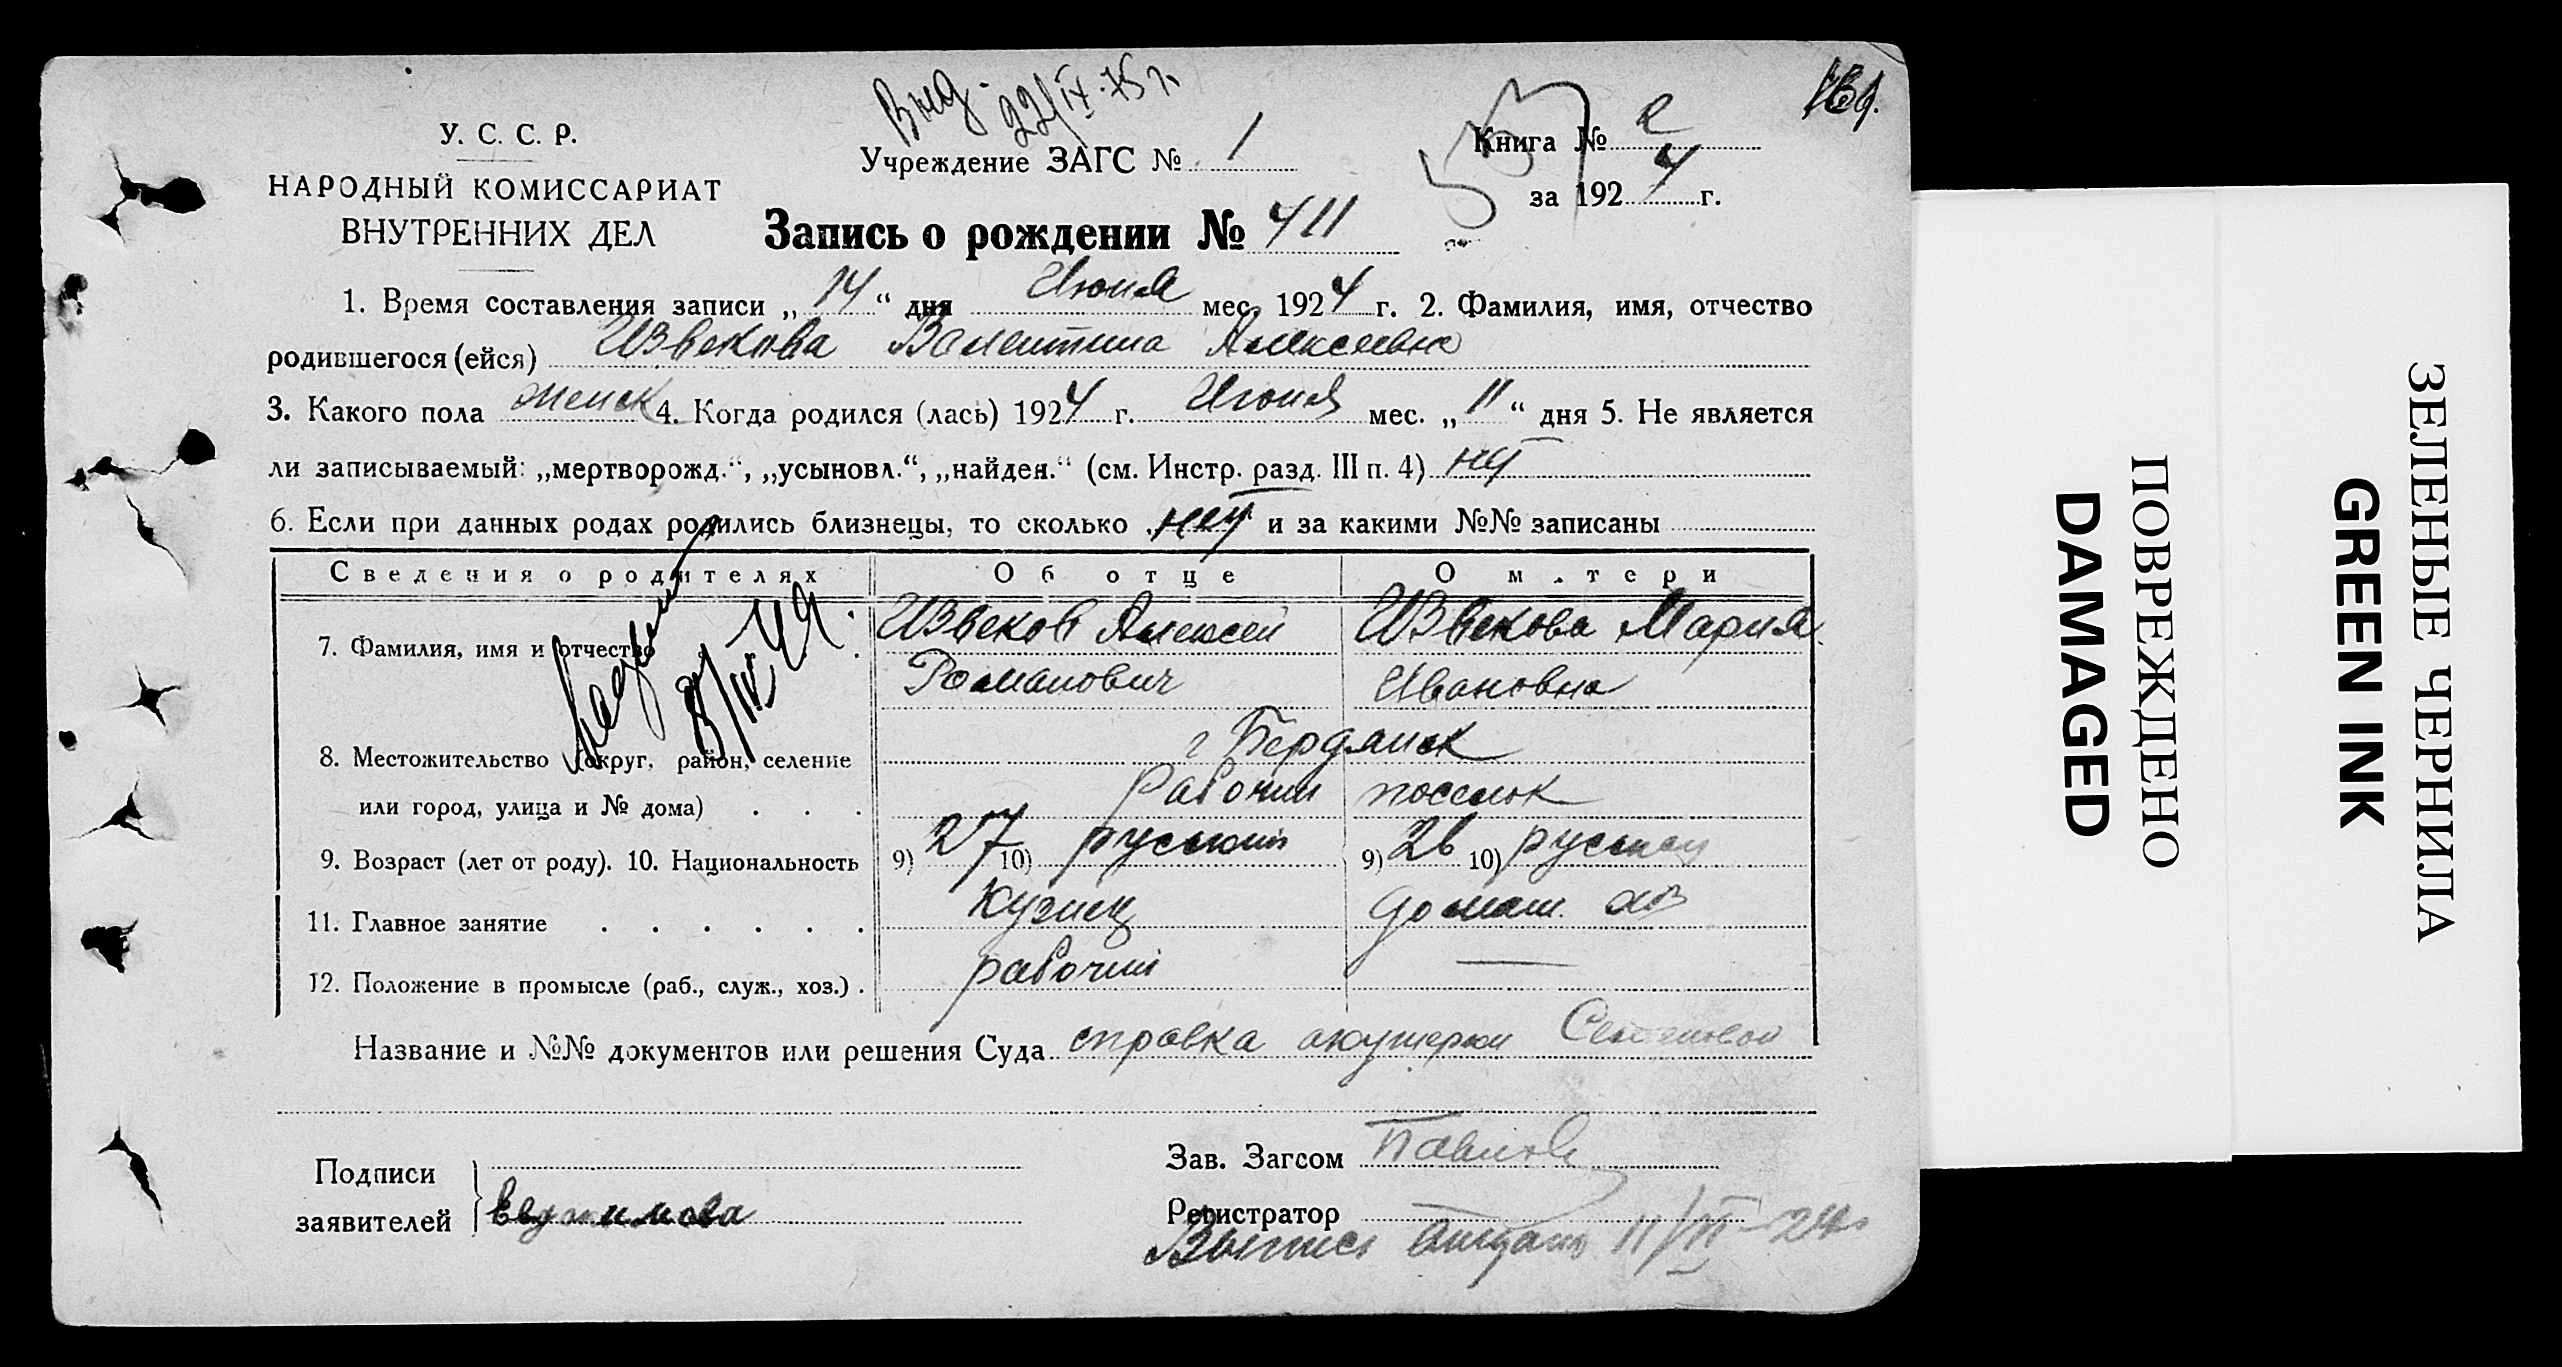 Выд. 22/IX-75 г.
181.
У. С. С. Р.
НАРОДНЫЙ КОМИССАРИАТ
ВНУТРЕННИХ ДЕЛ
Учреждение ЗАГС № 1
Книга № 2
за 1924 г.
Запись о рождении № 411
1. Время составления записи „14“ дня Июня мес. 1924 г. 2. Фамилия, имя, отчество
родившегося (ейся) Извекова Валентина Алексеевна
3. Какого пола женск 4. Когда родился (лась) 1924 г. Июня мес. „11“ дня 5. Не является
ли записываемый: „мертворожд.“, „усыновл.“, „найден.“ (см. Инстр. разд. III п. 4) нет
6. Если при данных родах родились близнецы, то сколько нет и за какими №№ записаны
Сведения о родителях Об отце О м.тери
7. Фамилия, имя и отчество Извеков Алексей Извекова Мария
Романович Ивановна
8. Местожительство (округ, район, селение г Бердянск
или город, улица и № дома) Рабочий поселок
9. Возраст (лет от роду). 10. Национальность 9) 27 10) русский 9) 26 10) русская
11. Главное занятие Кузнец домаш. хоз
12. Положение в промысле (раб., служ., хоз.) рабочий —
Название и №№ документов или решения Суда справка акушерки
Подписи
заявителей Евдокимова
Зав. Загсом Павлов
Регистратор
Выпись выдана 11/VI-24г
ПОВРЕЖДЕНО
DAMAGED
ЗЕЛЕНЫЕ ЧЕРНИЛА
GREEN INK